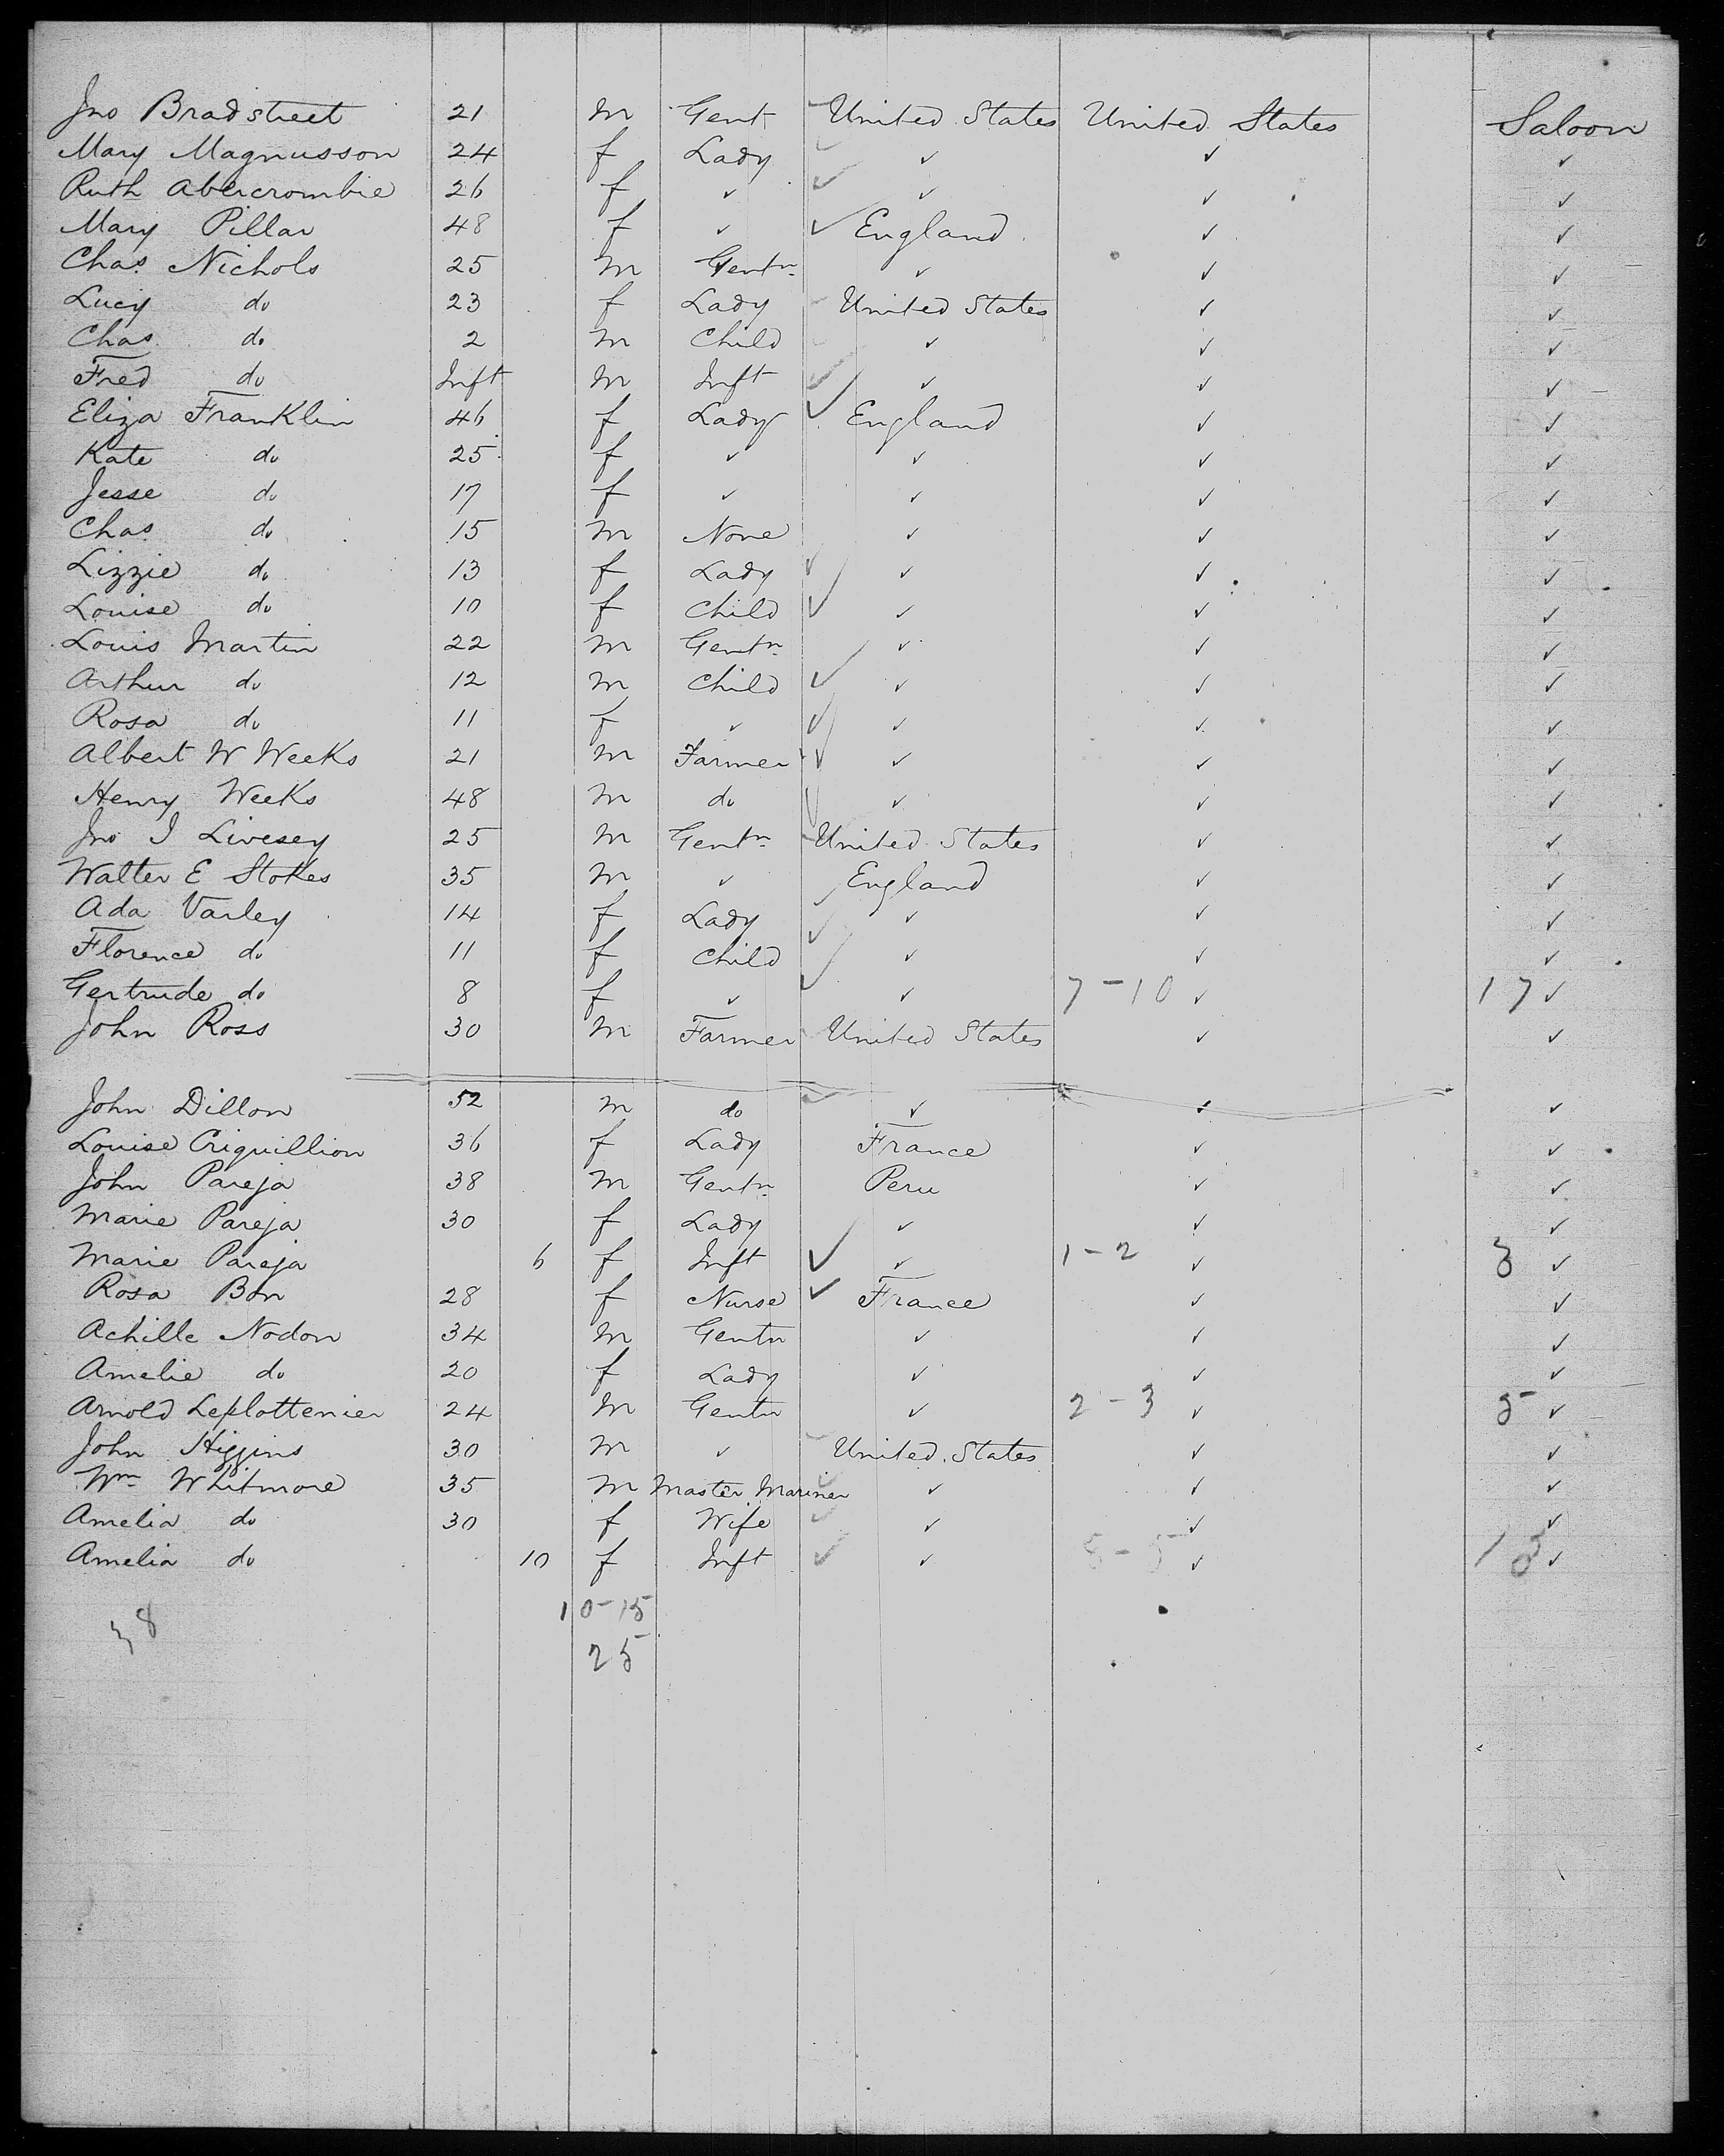 Jno Bradstreet 21 m Gent United States United States Saloon
Mary Magnusson 24 f Lady ✓ ✓ ✓
Ruth Abercrombie 26 f ✓ ✓ ✓ ✓
Mary Pillar 48 f ✓ England ✓ ✓
Chas. Nichols 25 m Gentn ✓ ✓ ✓
Lucy do 23 f Lady United States ✓ ✓
Chas do 2 m Child ✓ ✓ ✓
Fred do Inft m Inft ✓ ✓ ✓
Eliza Franklin 46 f Lady England ✓ ✓
Kate do 25 f ✓ ✓ ✓ ✓
Jesse do 17 f ✓ ✓ ✓ ✓
Chas do 15 m None ✓ ✓ ✓
Lizzie do 13 f Lady ✓ ✓ ✓
Louise do 10 f Child ✓ ✓ ✓
Louis Martin 22 m Gentn ✓ ✓ ✓
Arthur do 12 m Child ✓ ✓ ✓
Rosa do 11 f ✓ ✓ ✓ ✓
Albert W Weeks 21 m Farmer ✓ ✓ ✓
Henry Weeks 48 m do ✓ ✓ ✓
Jno I Livesey 25 m Gentn United States ✓ ✓
Walter E Stokes 35 m ✓ England ✓ ✓
Ada Varley 14 f Lady ✓ ✓ ✓
Florence do 11 f Child ✓ ✓ ✓
Gertrude do 8 f ✓ ✓ 7-10 ✓ 17 ✓
John Ross 30 m Farmer United States ✓ ✓
John Dillon 52 m do ✓ ✓ ✓
Louise Criquillion 36 f Lady France ✓ ✓
John Pareja 38 m Gentn Peru ✓ ✓
Marie Pareja 30 f Lady ✓ ✓ ✓
Marie Pareja 6 f Inft ✓ 1-2 ✓ 3 ✓
Rosa Bon 28 f Nurse France ✓ ✓
Achille Nodon 34 m Gentn ✓ ✓ ✓
Amelie do 20 f Lady ✓ ✓ ✓
Arnold Leplottenier 24 m Gentn ✓ 2-3 ✓ 5 ✓
John Higgins 30 m ✓ United States ✓ ✓
Wm Whitmore 35 m Master Mariner ✓ ✓ ✓
Amelia do 30 f Wife ✓ ✓ ✓
Amelia do 10 f Inft ✓ ✓ ✓
10-15
38
25